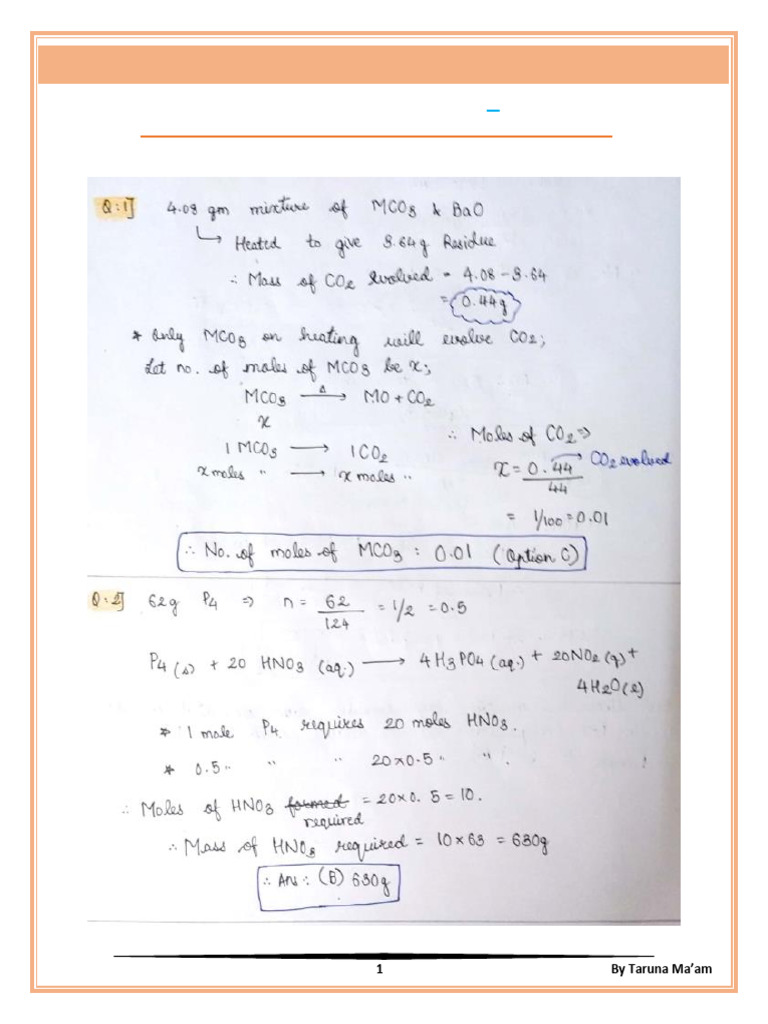 Q:1] 4.08 gm mixture of MCO3 & BaO
↳ Heated to give 3.64g Residue
∴ Mass of CO2 evolved = 4.08 - 3.64
= 0.44g
* Only MCO3 on heating will evolve CO2;
Let no. of moles of MCO3 be x;
MCO3 —Δ→ MO + CO2
x
∴ Moles of CO2 ⇒
1 MCO3 ⟶ 1 CO2
x moles " ⟶ x moles "
x = 0.44/44 → CO2 evolved
= 1/100 = 0.01
∴ No. of moles of MCO3 : 0.01 (Option C)
Q:2] 62g P4 ⇒ n = 62/124 = 1/2 = 0.5
P4(s) + 20 HNO3 (aq.) ⟶ 4H3PO4(aq.) + 20NO2(g) +
4H2O(l)
* 1 mole P4 requires 20 moles HNO3.
* 0.5 " " " 20×0.5 " " .
∴ Moles of HNO3 formed = 20×0.5 = 10.
required
∴ Mass of HNO3 required = 10×63 = 630g
∴ Ans : (B) 630g
1
By Taruna Ma’am